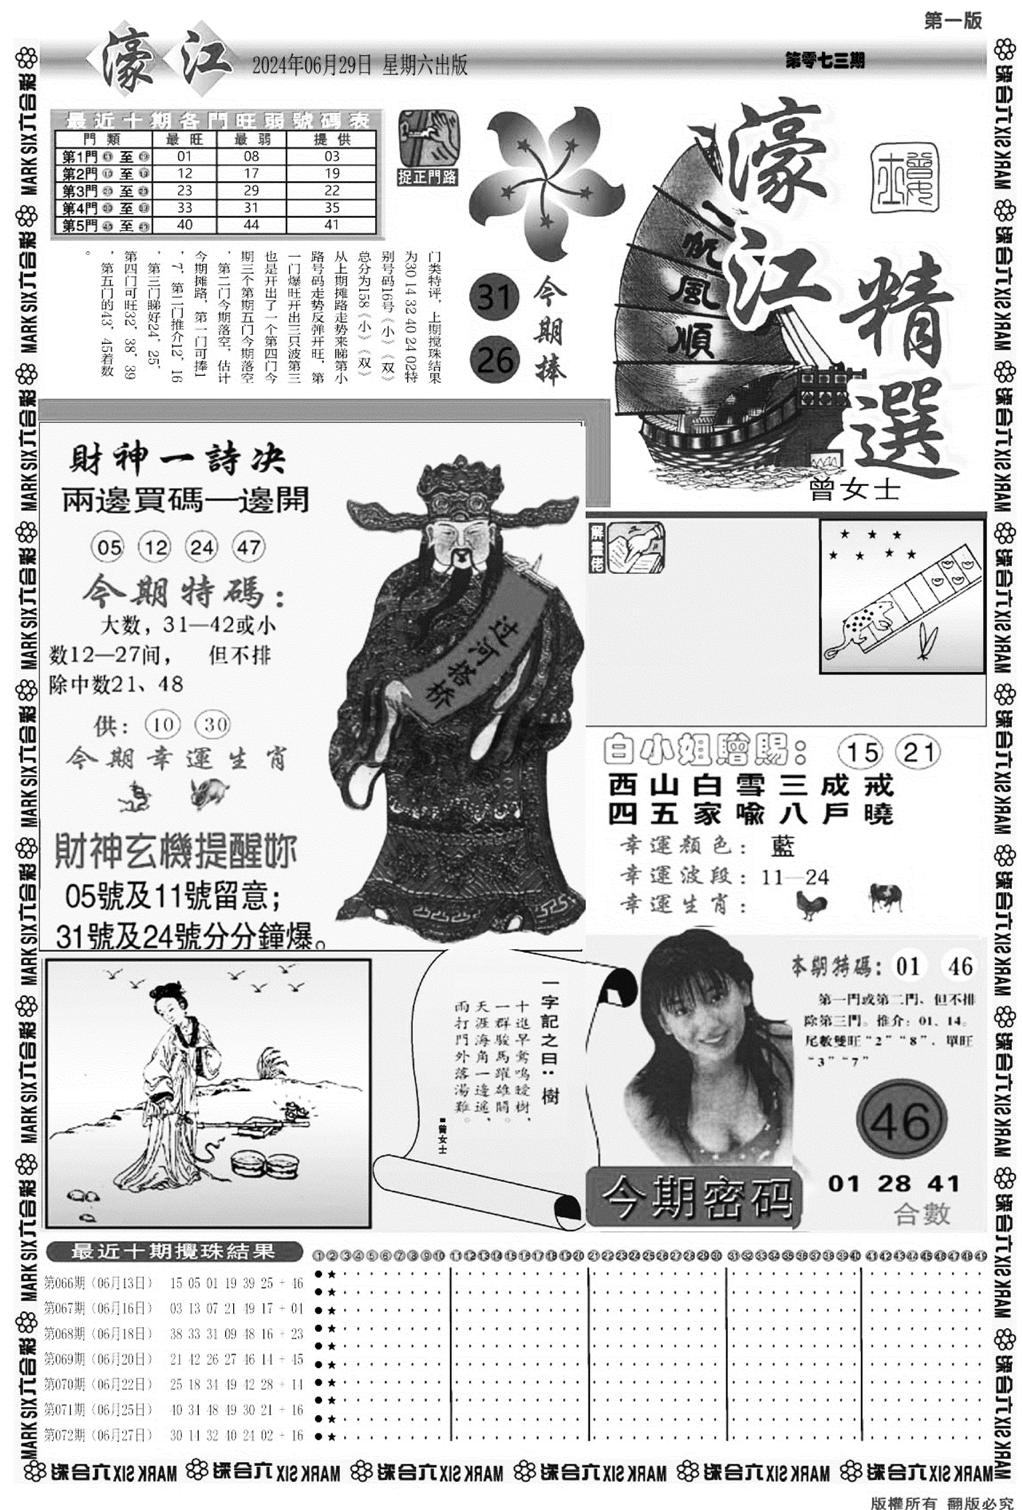 第一版
濠江
2024年06月29日 星期六出版
第零七三期
最近十期各門旺弱號碼表
門類 最旺 最弱 提供
第1門 至 01 08 03
第2門 至 12 17 19
第3門 至 23 29 22
第4門 至 33 31 35
第5門 至 40 44 41
捉正門路
门类特评，上期搅珠结果
为30 14 32 40 24 02特
别号码16号《小》《双》
总分为158《小》《双》
从上期摊路走势来睇第小
路号码走势反弹开旺，第
一门爆旺开出三只波第三
也是开出了一个第四门今
期三个第期五门今期落空
，第二门今期落空，估计
今期摊路，第一门可捧1
，7，第二门推介12，16
，第三门睇好24，25，
第四门可旺32，38，39
，第五门的43，45着数
。
31
26
今期捧
一帆風順
濠江
精選
曾女士
財神一詩决
兩邊買碼一邊開
05 12 24 47
今期特碼：
大数，31—42或小
数12—27间， 但不排
除中数21、48
供： 10 30
今期幸運生肖
財神玄機提醒妳
05號及11號留意；
31號及24號分分鐘爆。
过河搭桥
解畫佬
白小姐贈賜： 15 21
西山白雪三成戒
四五家喻八戶曉
幸運顏色： 藍
幸運波段：11—24
幸運生肖：
一字記之曰：樹
十進早鶯鳴暧樹，
一群駿馬躍雄關。
天涯海角一邊遙，
雨打門外落湯雞。
■曾女士
本期特碼：01 46
第一門或第二門、但不排
除第三門。推介：01、14。
尾數雙旺“2”“8”，單旺
“3”“7”
46
01 28 41
合數
今期密码
最近十期攪珠結果
①②③④⑤⑥⑦⑧⑨⑩⑪⑫⑬⑭⑮⑯⑰⑱⑲⑳㉑㉒㉓㉔㉕㉖㉗㉘㉙㉚㉛㉜㉝㉞㉟㊱㊲㊳㊴㊵㊶㊷㊸㊹㊺㊻㊼㊽㊾
第066期（06月13日） 15 05 01 19 39 25 + 46
第067期（06月16日） 03 13 07 21 49 17 + 01
第068期（06月18日） 38 33 31 09 48 16 + 23
第069期（06月20日） 21 42 26 27 46 14 + 45
第070期（06月22日） 25 18 34 49 42 28 + 14
第071期（06月25日） 40 34 48 49 30 21 + 16
第072期（06月27日） 30 14 32 40 24 02 + 16
MARK SIX 六合彩
版權所有 翻版必究